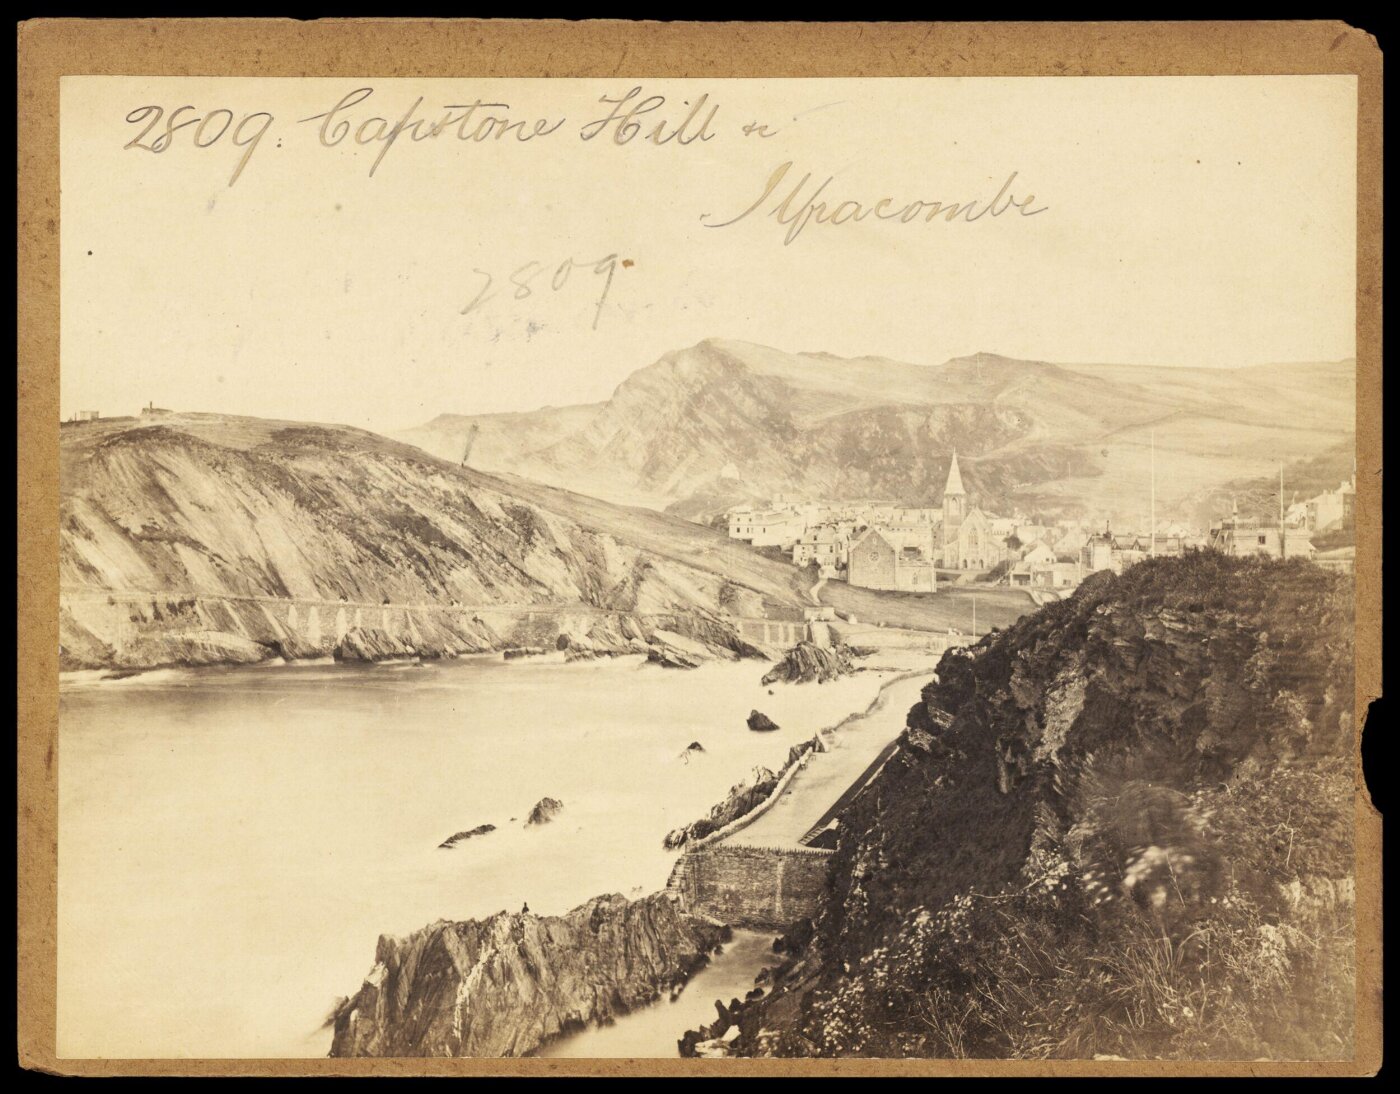 2809. Capstone Hill &c
Ilfracombe
2809